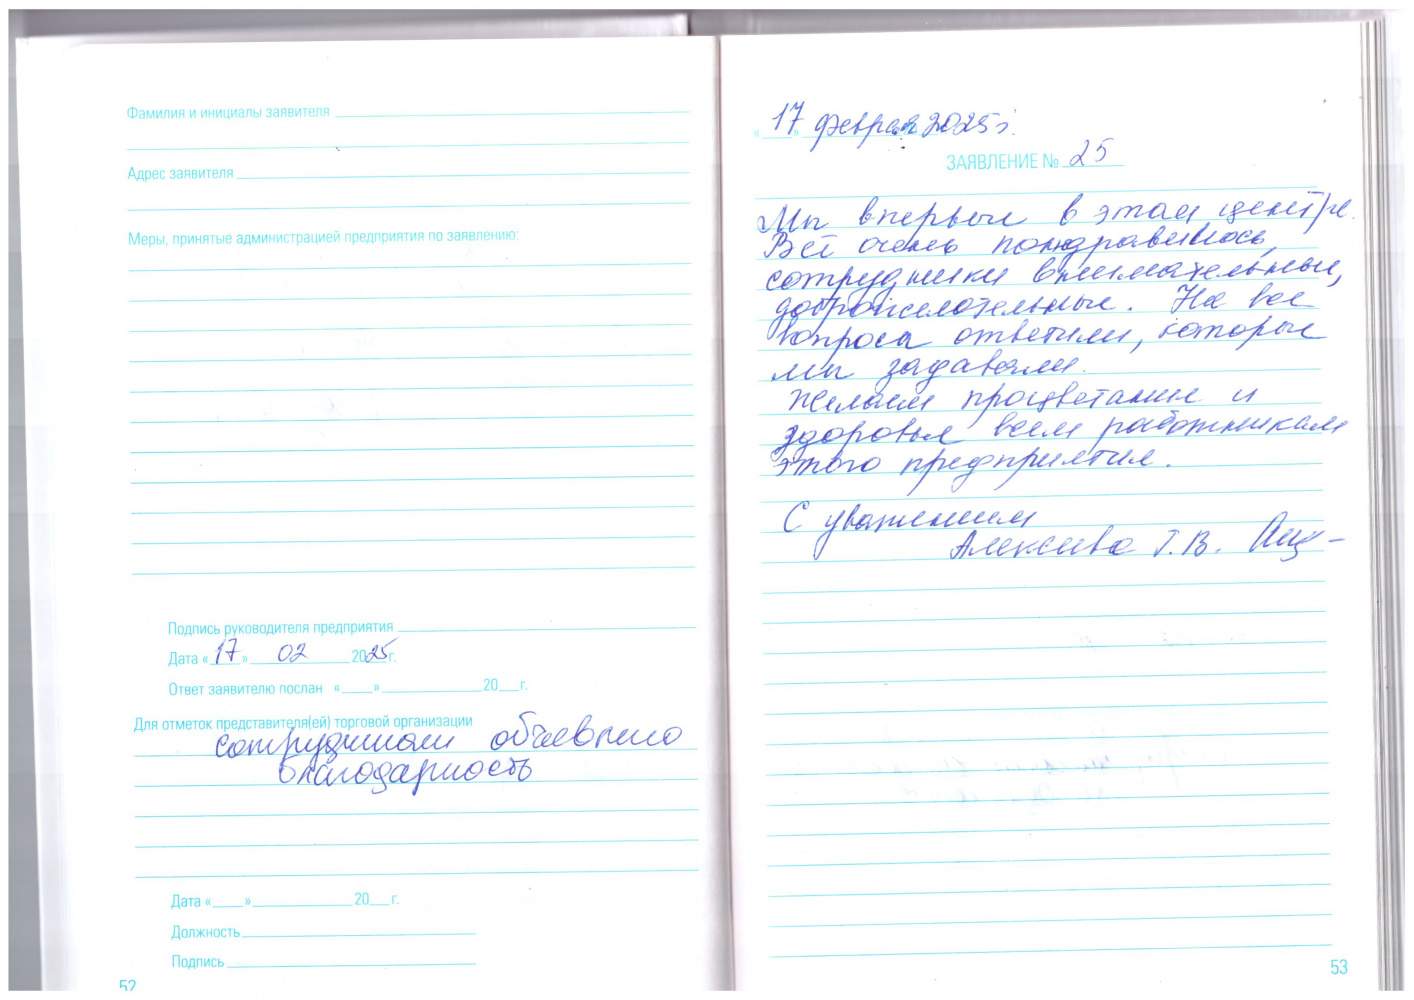 Фамилия и инициалы заявителя
Адрес заявителя
Меры, принятые администрацией предприятия по заявлению:
Подпись руководителя предприятия
Дата «17» 02 2025г.
Ответ заявителю послан «    »             20   г.
Для отметок представителя(ей) торговой организации
сотрудникам объявлено
благодарность
Дата «    »             20   г.
Должность
Подпись
52
«17» февраля 2025 г.
ЗАЯВЛЕНИЕ № 25
Мы впервые в этом центре.
Всё очень понравилось,
сотрудники внимательные,
доброжелательные. На все
вопросы ответили, которые
мы задавали.
Желаем процветание и
здоровья всем работникам
этого предприятия.
С уважением
Алексеева Т.В.
53